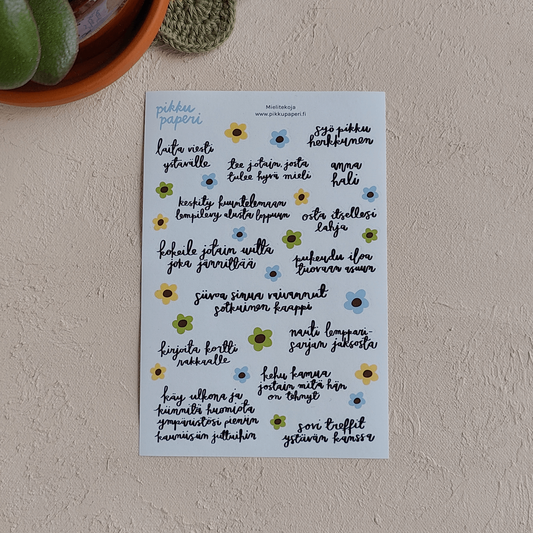 pikku
paperi
Mielitekoja
www.pikkupaperi.fi
syö pikku
herkkunen
laita viesti
ystävälle
tee jotain, josta
tulee hyvä mieli
anna
hali
keskity kuuntelemaan
lempilevy alusta loppuun
osta itsellesi
lahja
kokeile jotain uutta
joka jännittää
pukeudu iloa
tuovaan asuun
siivoa sinua vaivannut
sotkuinen kaappi
nauti lemppari-
sarjan jaksosta
kirjoita kortti
rakkaalle
kehu kamua
jostain mitä hän
on tehnyt
käy ulkona ja
kiinnitä huomiota
ympäristösi pieniin
kauniisiin juttuihin
sovi treffit
ystävän kanssa